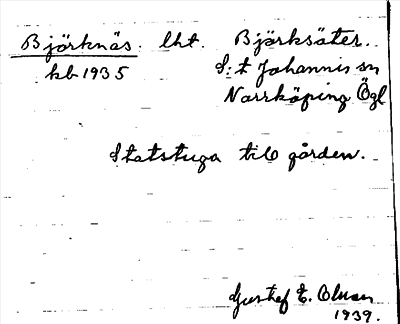 Björknäs. lht. Björksäter.
kb 1935 S:t Johannis sn
Norrköping Ögl
Statstuga till gården.
Gustef E. Olsson
1939.